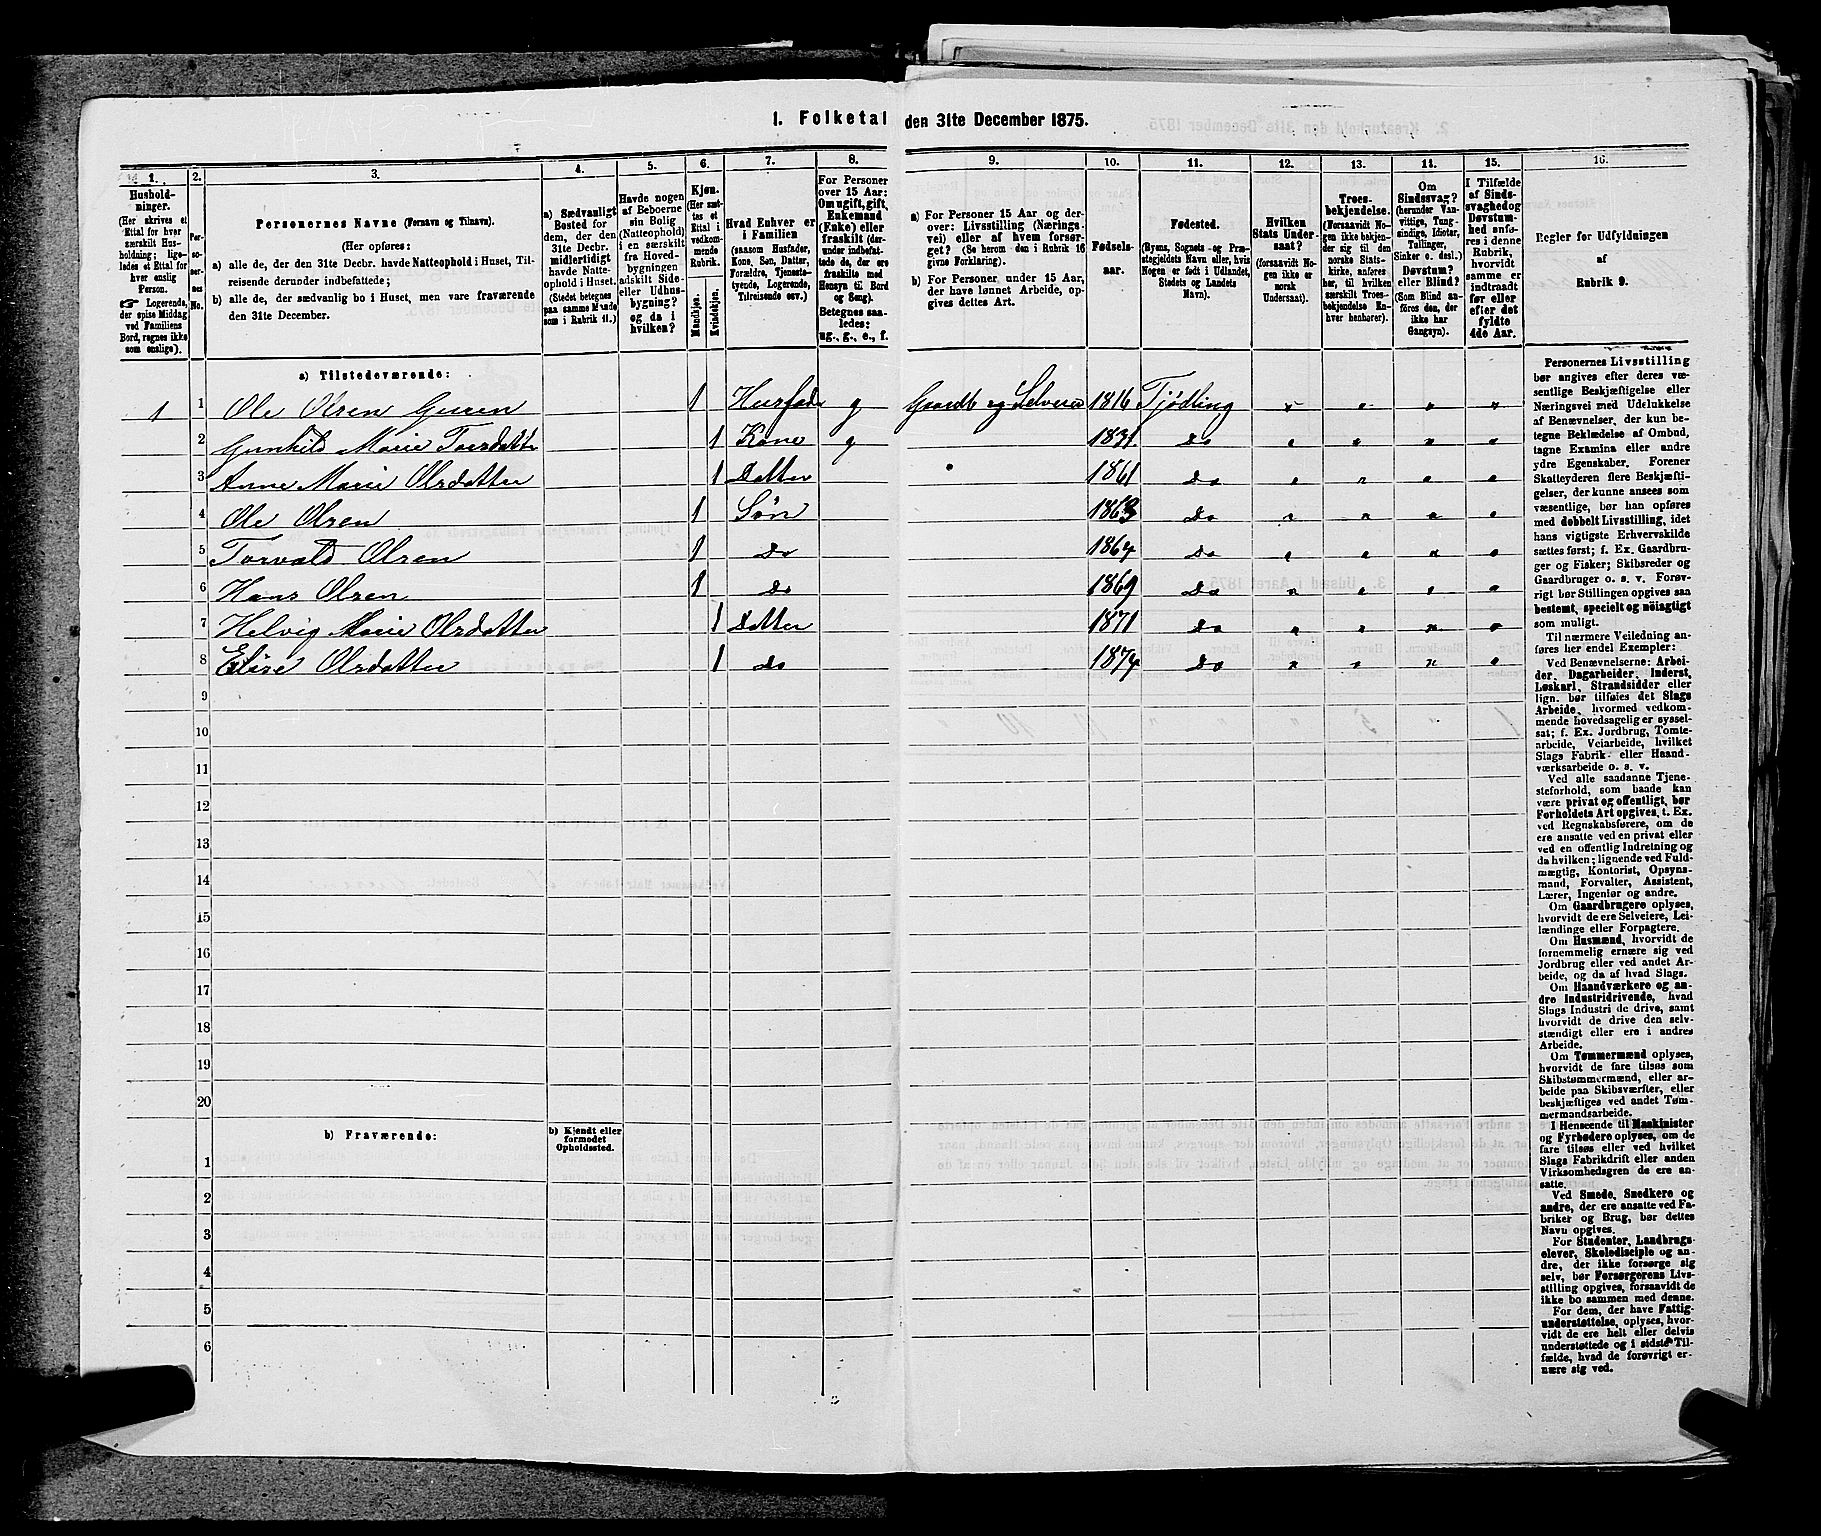 1. Folketal den 31te December 1875.
1.
2.
3.
4.
5.
6.
7.
8.
9.
10.
11.
12.
13.
14.
15.
16.
Hushold-
ninger.
(Her skrives et
Ettal for hver
særskilt Hus-
holdning; lige-
ledes et Ettal for
hver enslig
Person.
☞ Logerende,
der spise Middag
ved Familiens
Bord, regnes ikke
som enslige).
Per-
so-
ner-
nes
No.
Personernes Navne (Fornavn og Tilnavn).
(Her opføres:
a) alle de, der den 31te Decbr. havde Natteophold i Huset, Til-
reisende derunder indbefattede;
b) alle de, der sædvanlig bo i Huset, men vare fraværende
den 31te December.
a) Sædvanligt
Bosted for
dem, der den
31te Decbr.
midlertidigt
havde Natte-
ophold i Huset.
(Stedet betegnes
paa samme Maade
som i Rubrik 11.)
Havde nogen
af Beboerne
sin Bolig
(Natteophold)
i en særskilt
fra Hoved-
bygningen
adskilt Side-
eller Udhus-
bygning?
og da i
hvilken?
Kjøn.
(Her sæt-
tes et
Ettal i
vedkom-
mende
Rubrik.
Mandkjøn.
Kvindekjøn.
Hvad Enhver er
i Familien
(saasom Husfader,
Kone, Søn, Datter,
Forældre, Tjeneste-
tyende, Logerende,
Tilreisende osv.)
For Personer
over 15 Aar:
Om ugift, gift,
Enkemand
(Enke) eller
fraskilt (der-
under indbefat-
tede de, der ere
fraskilte med
Hensyn til Bord
og Seng).
Betegnes saa-
ledes:
ug., g., e., f.
a) For Personer 15 Aar og der-
over: Livsstilling (Nærings-
vei) eller af hvem forsør-
get? (Se herom den i Rubrik 16
givne Forklaring).
b) For Personer under 15 Aar,
der have lønnet Arbeide, op-
gives dettes Art.
Fødsels-
aar.
Fødested.
(Byens, Sognets og Præ-
stegjeldets Navn eller, hvis
Nogen er født i Udlandet,
Stedets og Landets
Navn).
Hvilken
Stats Under-
saat?
(forsaavidt No-
gen ikke er
norsk
Undersaat).
Troes-
bekjendelse.
(Forsaavidt No-
gen ikke bekjen-
der sig til den
norske Stats-
kirke, anføres
her, til hvilken
særskilt Troes-
bekjendelse En-
hver henhører).
Om
Sindssvag?
(herunder Van-
vittige, Tung-
sindige, Idioter,
Tullinger,
Sinker o. desl.).
Døvstum?
eller Blind?
(Som Blind an-
føres den, der
ikke har
Gangsyn).
I Tilfælde
af Sinds-
svaghed og
Døvstum-
hed anfø-
res i denne
Rubrik,
hvorvidt
samme er
indtraadt
før eller
efter det
fyldte
4de Aar.
Regler for Udfyldningen
af
Rubrik 9.
a) Tilstedeværende:
1 1 Ole Olsen Guren 1 Husfade g Gaardb og Selveier 1816 Tjødling
2 Gunhild Marie Torsdatter 1 Kone g 1831 Do
3 Anne Marie Olsdatter 1 Datter 1861 Do
4 Ole Olsen 1 Søn 1863 Do
5 Torvald Olsen 1 do 1864 Do
6 Hans Olsen 1 do 1869 Do
7 Helvig Marie Olsdatter 1 Datter 1871 Do
8 Elise Olsdatter 1 do 1874 Do
9
10
11
12
13
14
15
16
17
18
19
20
b) Fraværende:
b) Kjendt eller
formodet
Opholdssted.
1
2
3
4
5
6
Personernes Livsstilling
bør angives efter deres væ-
sentlige Beskjæftigelse eller
Næringsvei med Udelukkelse
af Benævnelser, der kun be-
tegne Beklædelse af Ombud,
tagne Examina eller andre
ydre Egenskaber. Forener
Skatteyderen flere Beskjæfti-
gelser, der kunne ansees som
væsentlige, bør han opføres
med dobbelt Livsstilling, idet
hans vigtigste Erhvervskilde
sættes først; f. Ex. Gaardbru-
ger og Fisker; Skibsreder og
Gaardbruger o. s. v. Forøv-
rigt bør Stillingen opgives saa
bestemt, specielt og nøiagtigt
som muligt.
Til nærmere Veiledning an-
føres her endel Exempler:
Ved Benævnelserne: Arbei-
der, Dagarbeider, Inderst,
Løskarl, Strandsidder eller
lign. bør tilføies det Slags
Arbeide, hvormed vedkom-
mende hovedsagelig er syssel-
sat; f. Ex. Jordbrug, Tomte-
arbeide, Veiarbeide, hvilket
Slags Fabrik- eller Haand-
værksarbeide o. s. v.
Ved alle saadanne Tjene-
steforhold, som baade kan
være privat og offentligt, bør
Forholdets Art opgives, t. Ex.
ved Regnskabsførere, om de
ere ansatte ved en privat eller
ved en offentlig Indretning og
da hvilken; lignende ved Fuld-
mægtig, Kontorist, Opsyns-
mand, Forvalter, Assistent,
Lærer, Ingeniør og andre.
Om Gaardbrugere oplyses,
hvorvidt de ere Selveiere, Lei-
lændinge eller Forpagtere.
Om Husmænd, hvorvidt de
fornemmelig ernære sig ved
Jordbrug eller ved andet Ar-
beide, og da af hvad Slags.
Om Haandværkere og an-
dre Industridrivende, hvad
Slags Industri de drive, samt
hvorvidt de drive den selv-
stændigt eller ere i andres
Arbeide.
Om Tømmermænd oplyses,
hvorvidt de fare tilsøs som
Skibstømmermænd, eller ar-
beide paa Skibsværfter, eller
beskjæftiges ved andet Tøm-
mermandsarbeide.
I Henseende til Maskinister
og Fyrbødere oplyses, om de
fare tilsøs eller ved hvilket
Slags Fabrikdrift eller anden
Virksomhedsgren de ere an-
satte.
Ved Smede, Snedkere og
andre, der ere ansatte ved Fa-
briker og Brug, bør dettes
Navn opgives.
For Studenter, Landbrugs-
elever, Skoledisciple og an-
dre, der ikke forsørge sig
selv, bør Forsørgerens Livs-
stilling opgives, forsaavidt de
ikke bo sammen med denne.
For dem, der have Fattig-
understøttelse, oplyses, hvor-
vidt de ere helt eller delvis
understøttede og i sidste Til-
fælde, hvad de forøvrigt er-
nære sig ved.